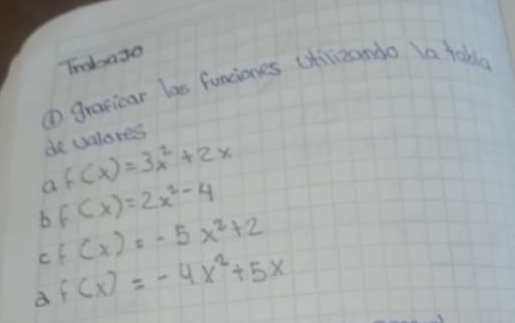 Trabajo
① graficar las funciones utilizando la tabla
de valores
a f(x)=3x²+2x
b f(x)=2x²-4
c f(x)=-5x²+2
d f(x)=-4x²+5x